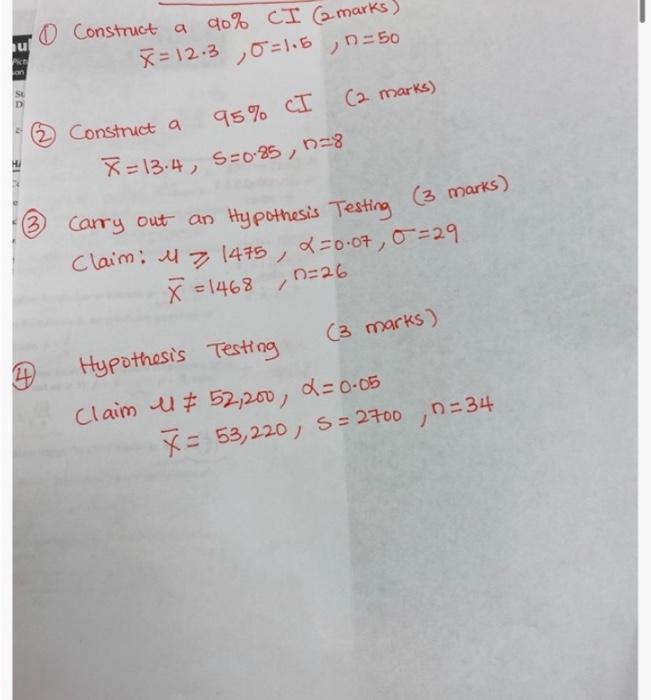 ① Construct a 90% CI (2 marks)
x̄ = 12.3 , σ = 1.5 , n = 50
② Construct a 95% CI (2 marks)
x̄ = 13.4 , s = 0.85 , n = 8
③ Carry out an Hypothesis Testing (3 marks)
Claim: μ ⩾ 1475 , α = 0.07 , σ = 29
x̄ = 1468 , n = 26
④ Hypothesis Testing (3 marks)
Claim μ ≠ 52,200 , α = 0.05
x̄ = 53,220 , s = 2700 , n = 34